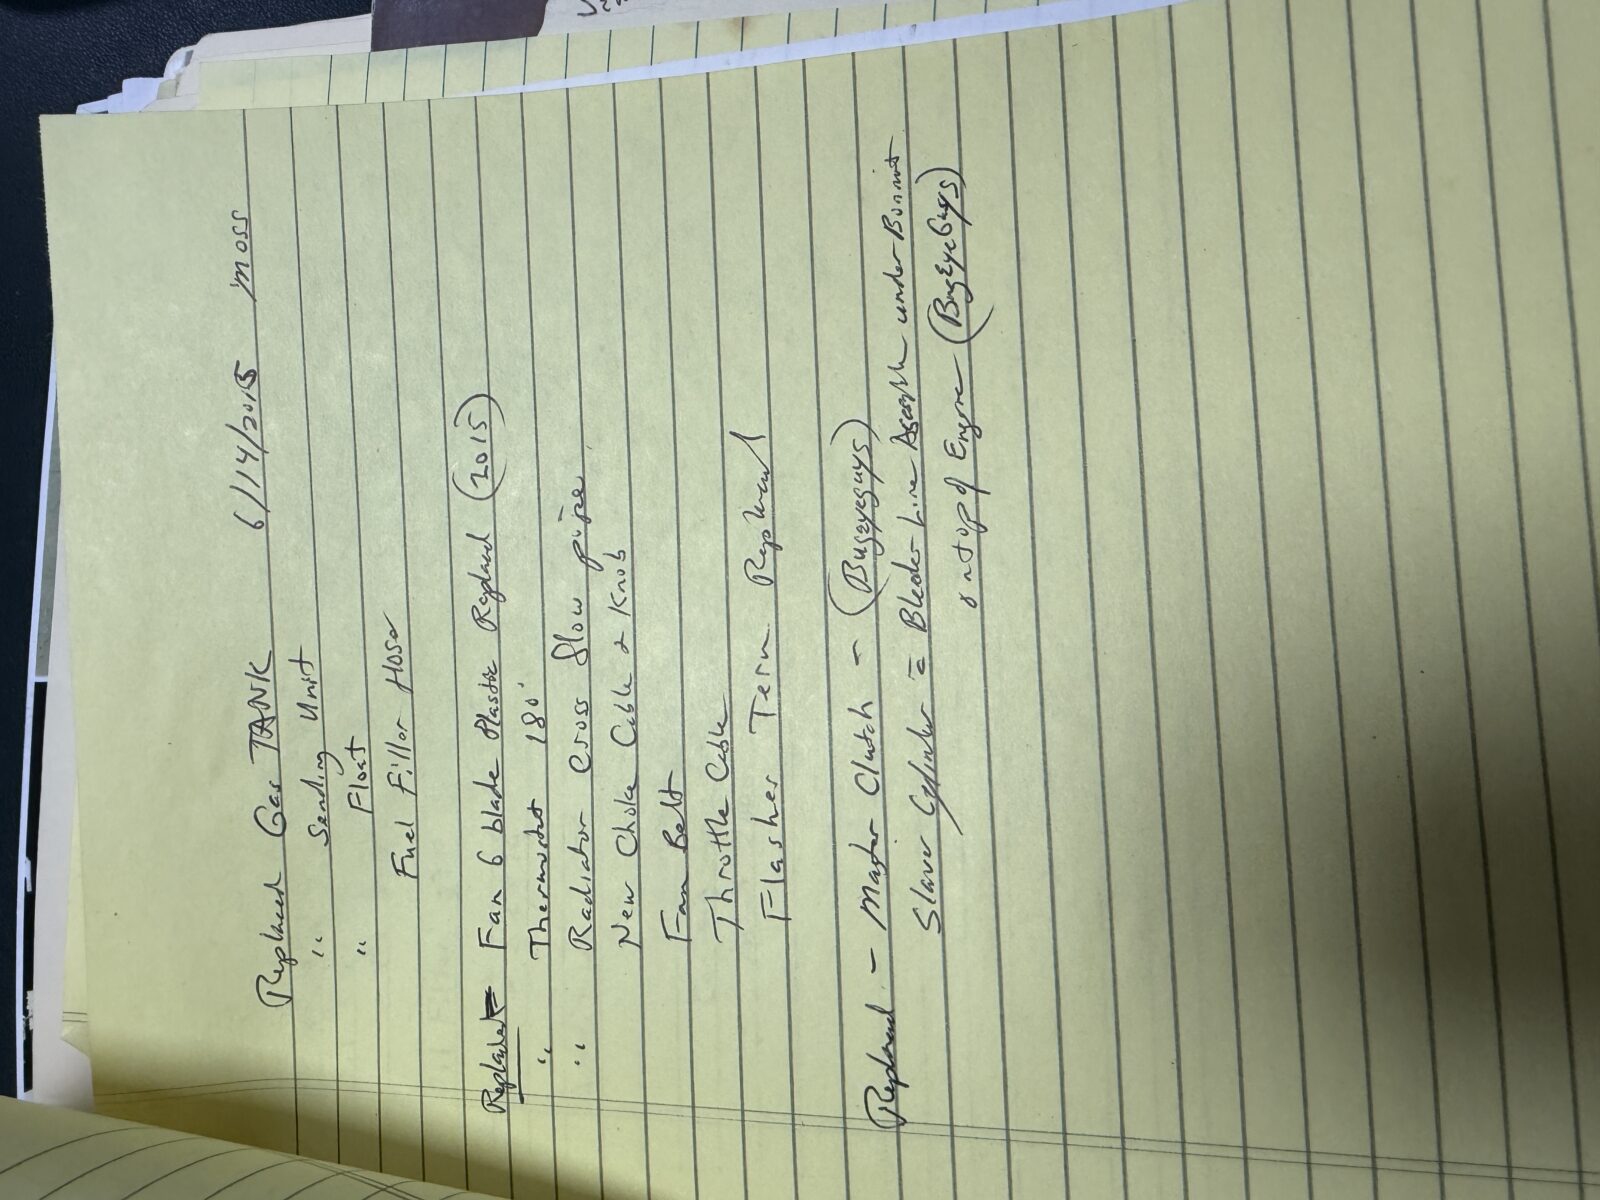 Replaced Gas TANK 6/14/2015 Moss
" Sending Unit
" Float
Fuel Filler Hose
Replaced Fan 6 blade Plastic Replaced (2015)
" Thermostat 180°
" Radiator Cross flow pipe
New Choke Cable & Knob
Fan Belt
Throttle Cable
Flasher Term Replaced
Replaced - Master Clutch - (Bugeyeguys)
Slave Cylinder = Bleeder Line Assembly under Bonnet
on top of Engine (BugEyeGuys)